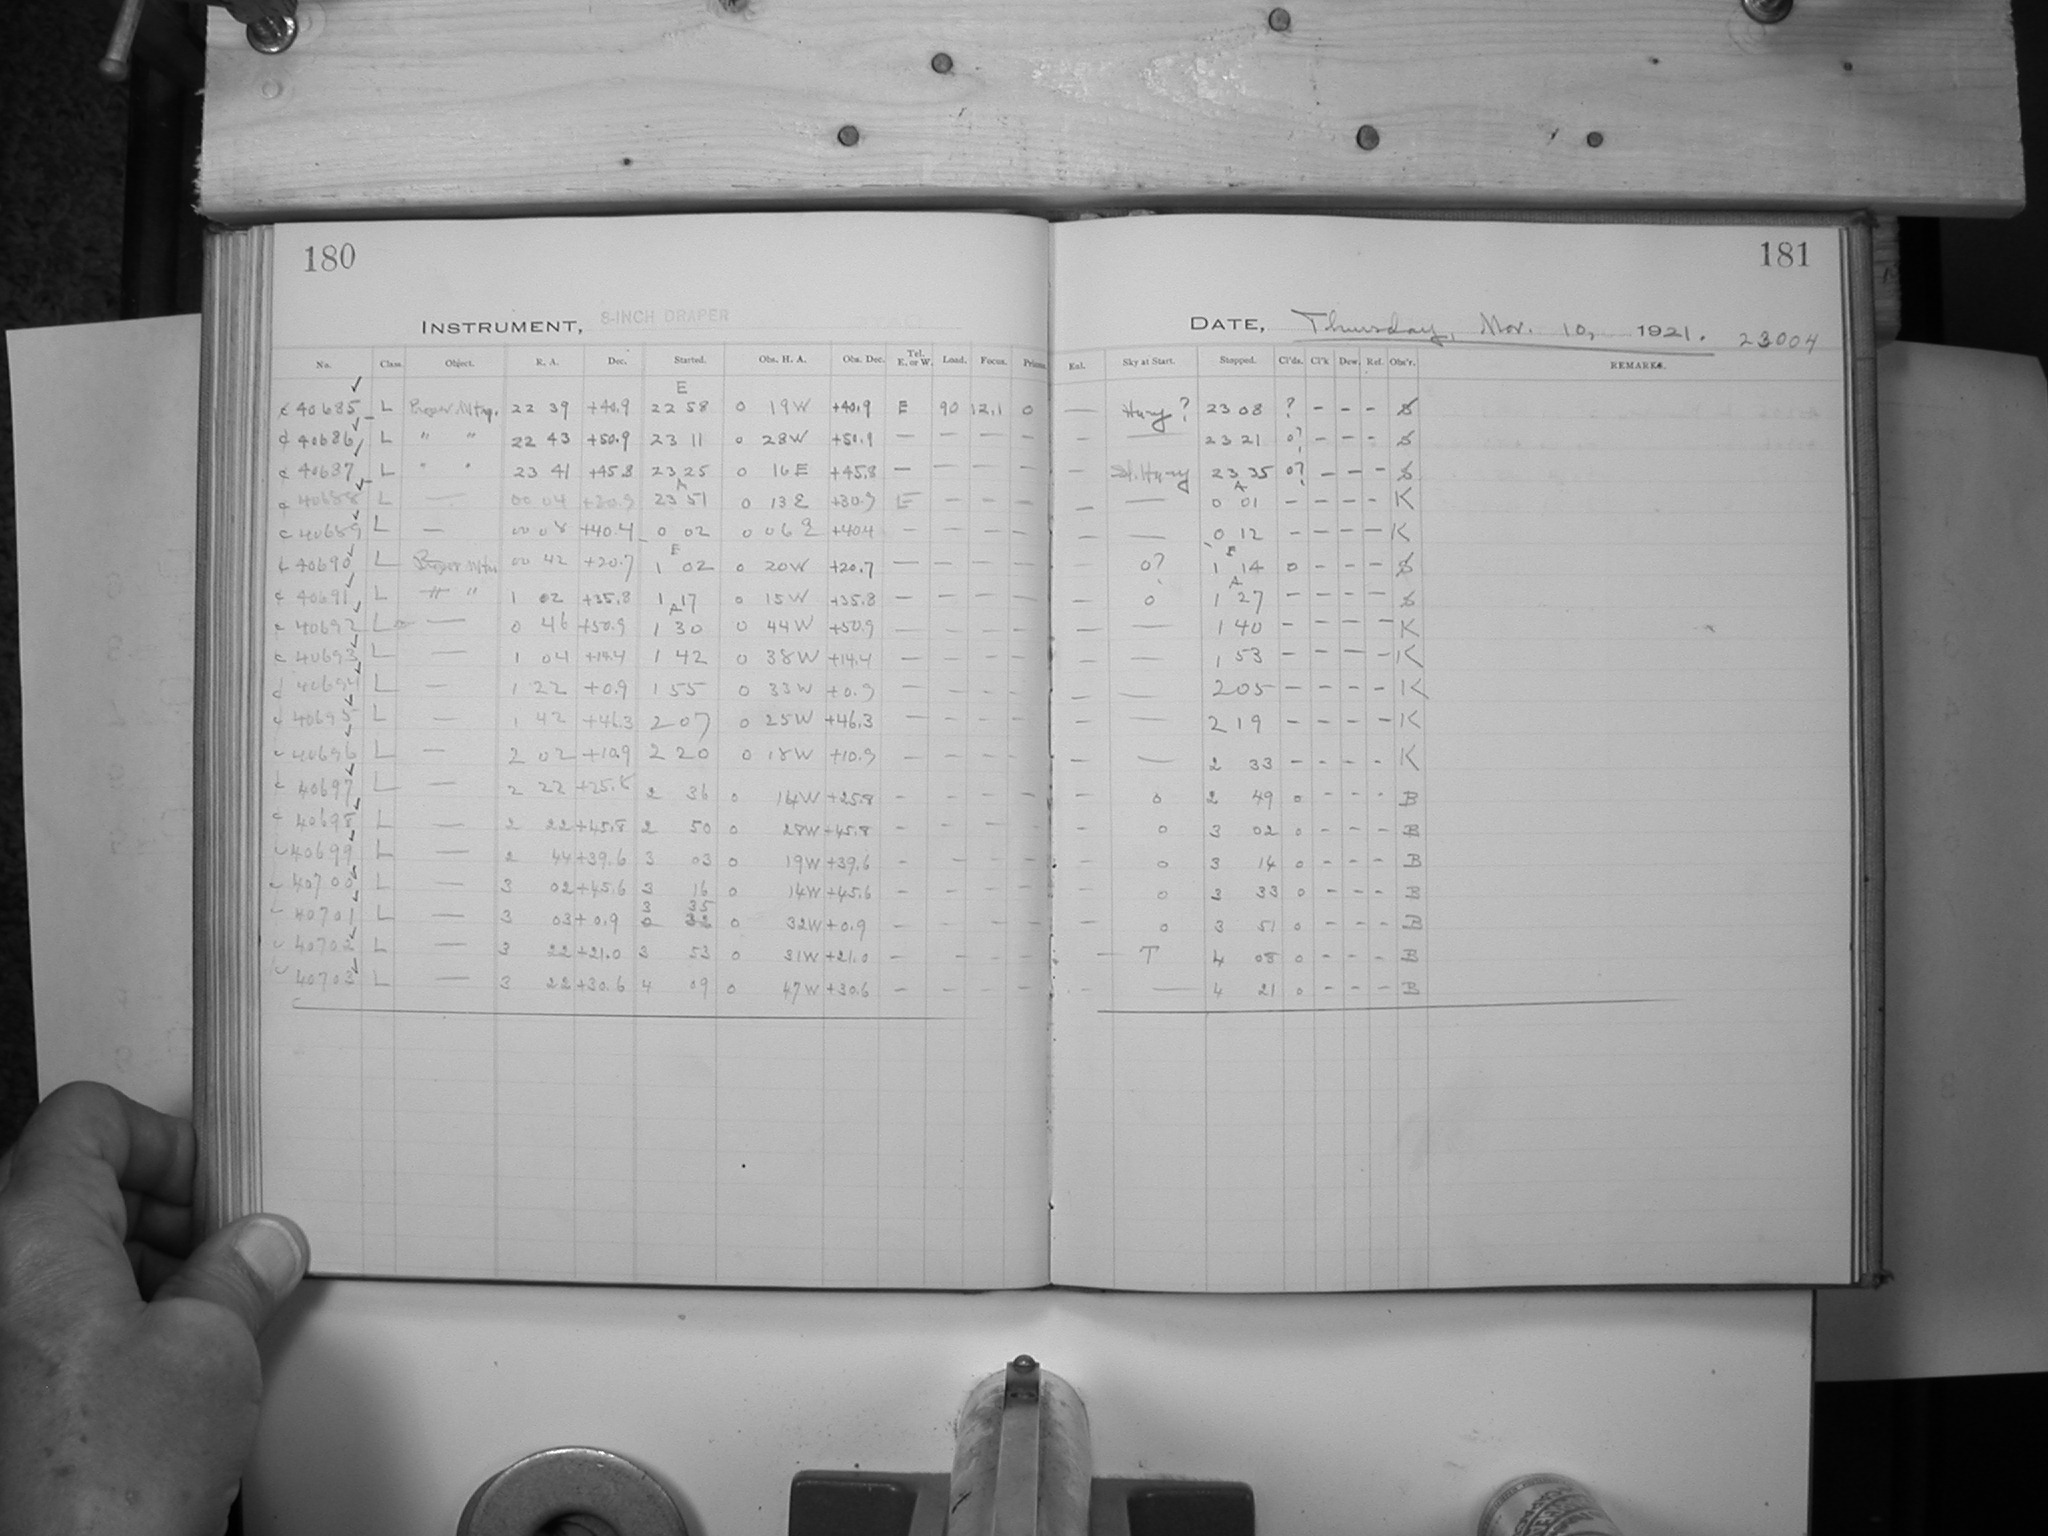 180
181
INSTRUMENT, 8-INCH DRAPER
DATE, Thursday, Nov. 10, 1921. 23004
No. Class. Object. R. A. Dec. Started. Obs. H. A. Obs. Dec. Tel. E. or W. Load. Focus. Prisms. Exl. Sky at Start. Stopped. Cl'ds. Cl'k Dew. Ref. Obs'r. REMARKS.
E
c 40685 L 22 39 +40.9 22 58 0 19W +40.9 E 90 12.1 0 — Hazy? 23 08 ? - - - S
c 40686 L " " 22 43 +50.9 23 11 0 28W +50.9 — — — — — — 23 21 0? - - - S
c 40687 L " " 23 41 +45.8 23 25 0 16E +45.8 — — — — — Sl. Hazy 23 35 0? - - - S
A A
c 40688 L — 00 04 +30.9 23 51 0 13E +30.9 E — — — — — 0 01 - - - - K
c 40689 L — 00 08 +40.4 0 02 0 06E +40.4 — — — — — — 0 12 - - - - K
E E
c 40690 L 00 42 +20.7 1 02 0 20W +20.7 — — — — — 0? 1 14 0 - - - S
A
c 40691 L " " 1 02 +35.8 1 17 0 15W +35.8 — — — — — 0 1 27 - - - - S
A
c 40692 L — 0 46 +50.9 1 30 0 44W +50.9 — — — — — — 1 40 - - - - K
c 40693 L — 1 04 +14.4 1 42 0 38W +14.4 — — — — — — 1 53 - - - - K
c 40694 L — 1 22 +0.9 1 55 0 33W +0.9 — — — — — — 2 05 - - - - K
c 40695 L — 1 42 +46.3 2 07 0 25W +46.3 — — — — — — 2 19 - - - - K
c 40696 L — 2 02 +10.9 2 20 0 18W +10.9 — — — — — — 2 33 - - - - K
c 40697 L — 2 22 +25.8 2 36 0 14W +25.8 - - - - - 0 2 49 0 - - - B
c 40698 L — 2 22 +45.8 2 50 0 28W +45.8 - - - - - 0 3 02 0 - - - B
c 40699 L — 2 44 +39.6 3 03 0 19W +39.6 - - - - 0 3 14 0 - - - B
c 40700 L — 3 02 +45.6 3 16 0 14W +45.6 - - - - - 0 3 33 0 - - - B
3 35
c 40701 L — 3 03 +0.9 0 32W +0.9 - - - - - 0 3 51 0 - - - B
c 40702 L — 3 22 +21.0 3 53 0 31W +21.0 - - - - — T 4 08 0 - - - B
c 40703 L — 3 22 +30.6 4 09 0 47W +30.6 - - - - - — 4 21 0 - - - B